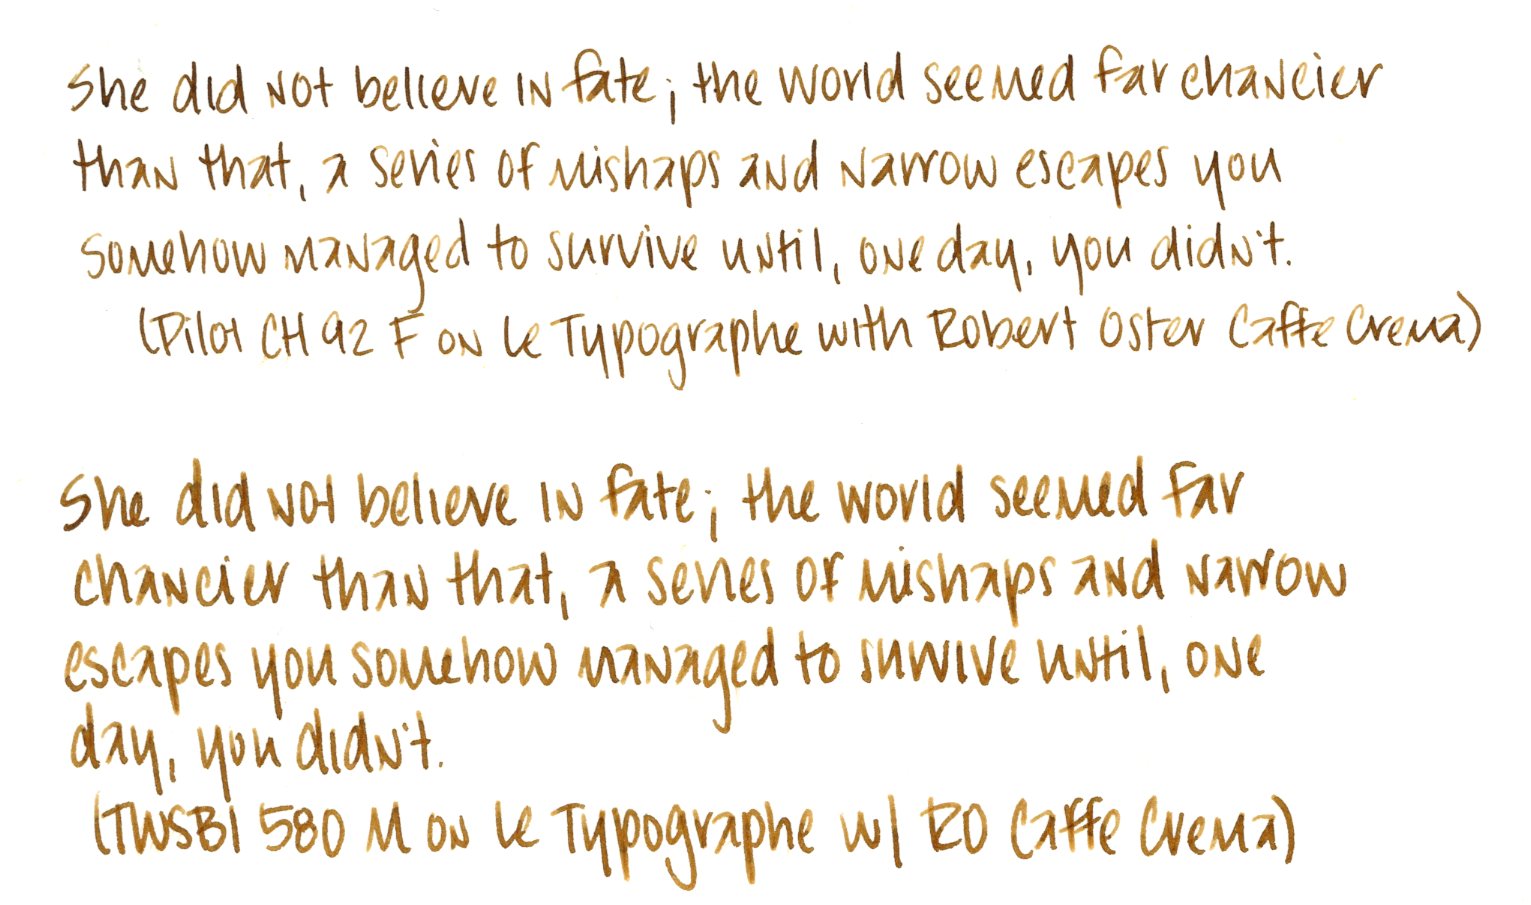 She did not believe in fate; the world seemed far chancier
than that, a series of mishaps and narrow escapes you
somehow managed to survive until, one day, you didn't.
(Pilot CH 92 F on Le Typographe with Robert Oster Caffe Crema)
She did not believe in fate; the world seemed far
chancier than that, a series of mishaps and narrow
escapes you somehow managed to survive until, one
day, you didn't.
(TWSBI 580 M on Le Typographe w/ RO Caffe Crema)